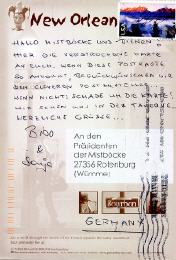 New Orleans
HALLO MISTBÖCKE UND -BIENEN!
HIER DIE VERSPROCHENE KARTE
AN EUCH. WENN DIESE POSTKARTE
SO ANKOMMT, BEGLÜCKWÜNSCHEN WIR
DEN CLEVEREN POSTMEISTER.
WENN NICHT: SCHADE UM DIE KARTE!
WIR SEHEN UNS IN DER TAVERNE
HERZLICHE GRÜSSE...
Bibo
&
Sonja
An den
Präsidenten
der Mistböcke
27356 Rotenburg
(Wümme)
Bourbon
GERMANY